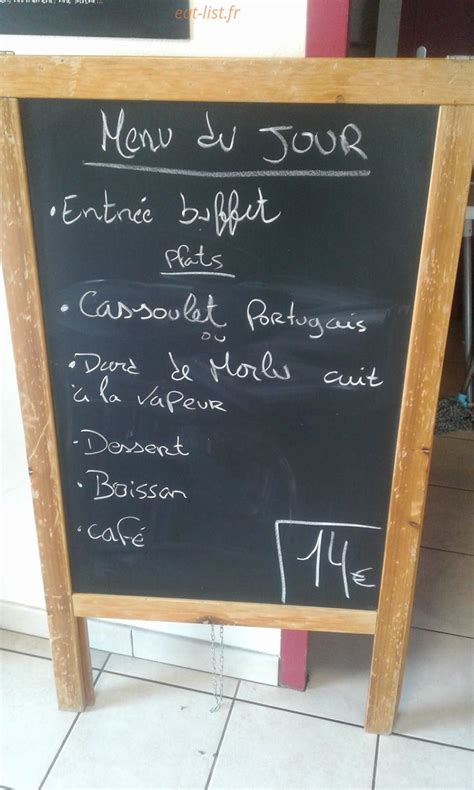 eat-list.fr
Menu du JOUR
• Entrée buffet
Plats
• Cassoulet Portugais
ou
• Dard de Morlu cuit
à la vapeur
• Dessert
• Boisson
• café
14€